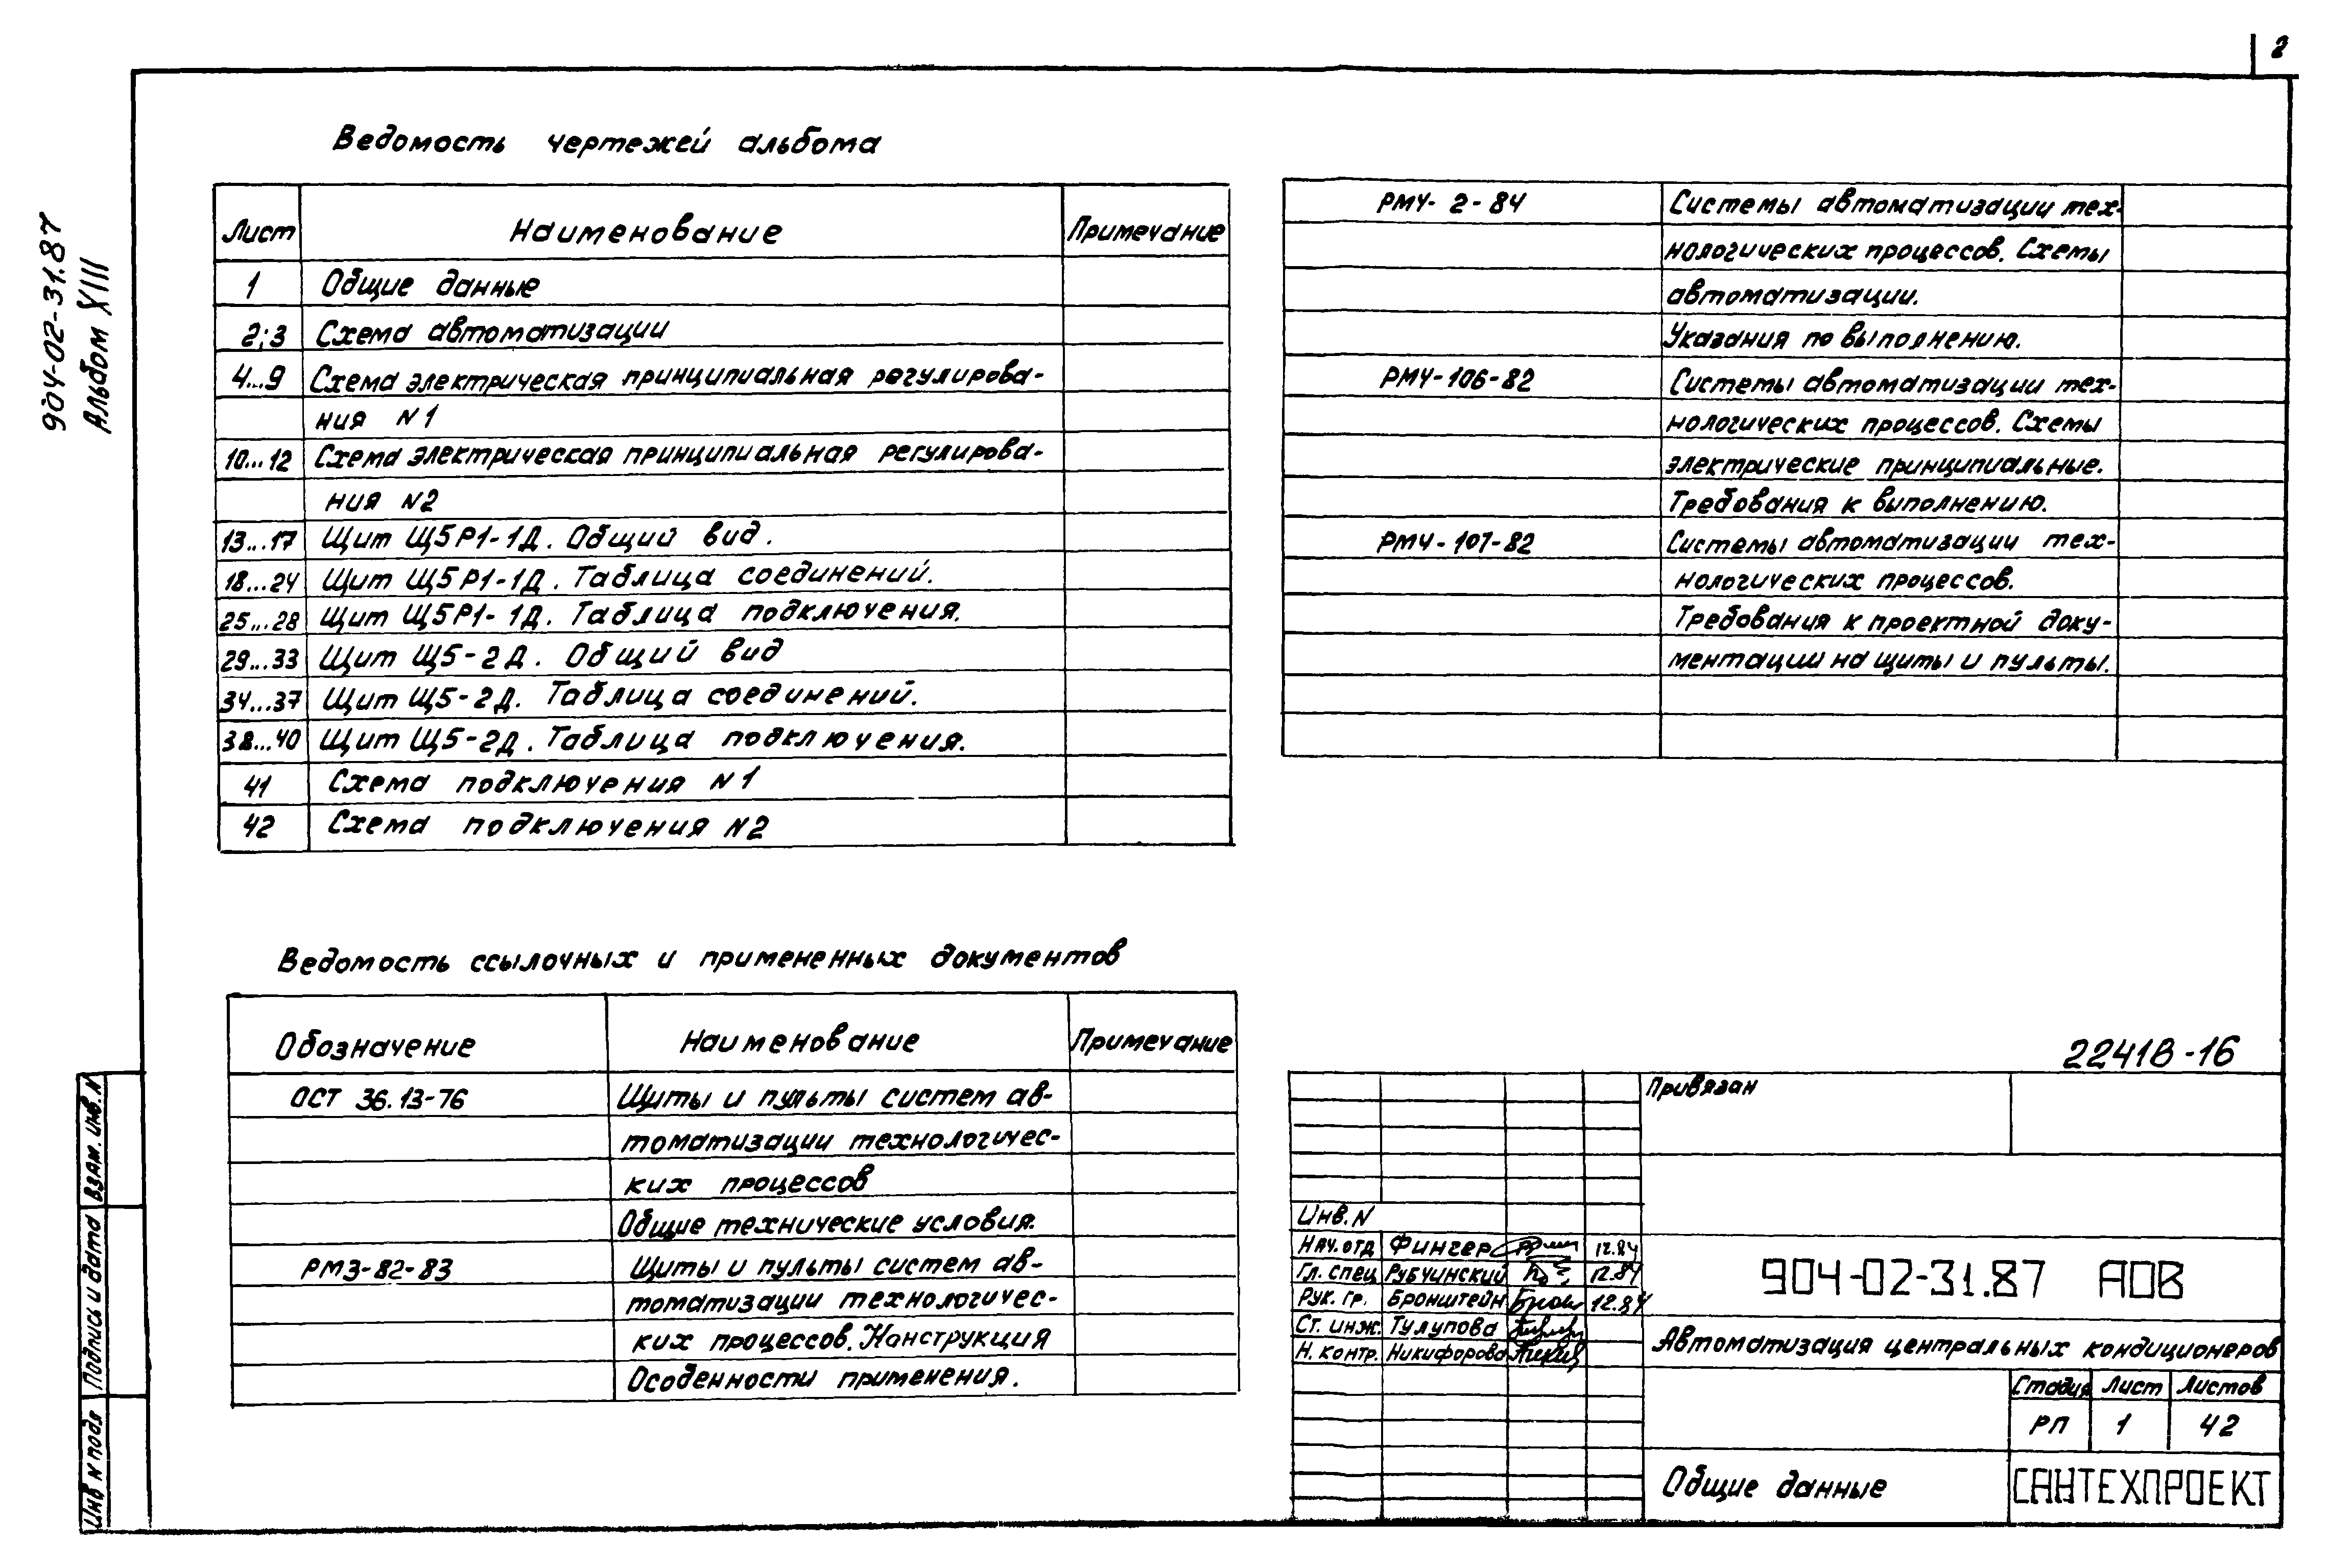 2
904-02-31.87
Альбом XIII
Ведомость чертежей альбома
Лист Наименование Примечание
1 Общие данные
2;3 Схема автоматизации
4...9 Схема электрическая принципиальная регулирова-
ния N1
10...12 Схема электрическая принципиальная регулирова-
ния N2
13...17 Щит Щ5Р1-1Д. Общий вид.
18...24 Щит Щ5Р1-1Д. Таблица соединений.
25...28 Щит Щ5Р1-1Д. Таблица подключения.
29...33 Щит Щ5-2Д. Общий вид
34...37 Щит Щ5-2Д. Таблица соединений.
38...40 Щит Щ5-2Д. Таблица подключения.
41 Схема подключения N1
42 Схема подключения N2
Ведомость ссылочных и примененных документов
Обозначение Наименование Примечание
ОСТ 36.13-76 Щиты и пульты систем ав-
томатизации технологичес-
ких процессов
Общие технические условия.
РМ3-82-83 Щиты и пульты систем ав-
томатизации технологичес-
ких процессов. Конструкция
Особенности применения.
РМ4-2-84 Системы автоматизации тех-
нологических процессов. Схемы
автоматизации.
Указания по выполнению.
РМ4-106-82 Системы автоматизации тех-
нологических процессов. Схемы
электрические принципиальные.
Требования к выполнению.
РМ4-107-82 Системы автоматизации тех-
нологических процессов.
Требования к проектной доку-
ментации на щиты и пульты.
22418-16
Привязан
Инв. N
Нач. отд Фингер 12.84
Гл. спец Рубчинский 12.84
Рук. гр. Бронштейн 12.84
Ст. инж. Тулупова
Н. контр. Никифорова
904-02-31.87 АОВ
Автоматизация центральных кондиционеров
Стадия Лист Листов
РП 1 42
Общие данные
САНТЕХПРОЕКТ
Взам. инв. N
Подпись и дата
Инв N подл